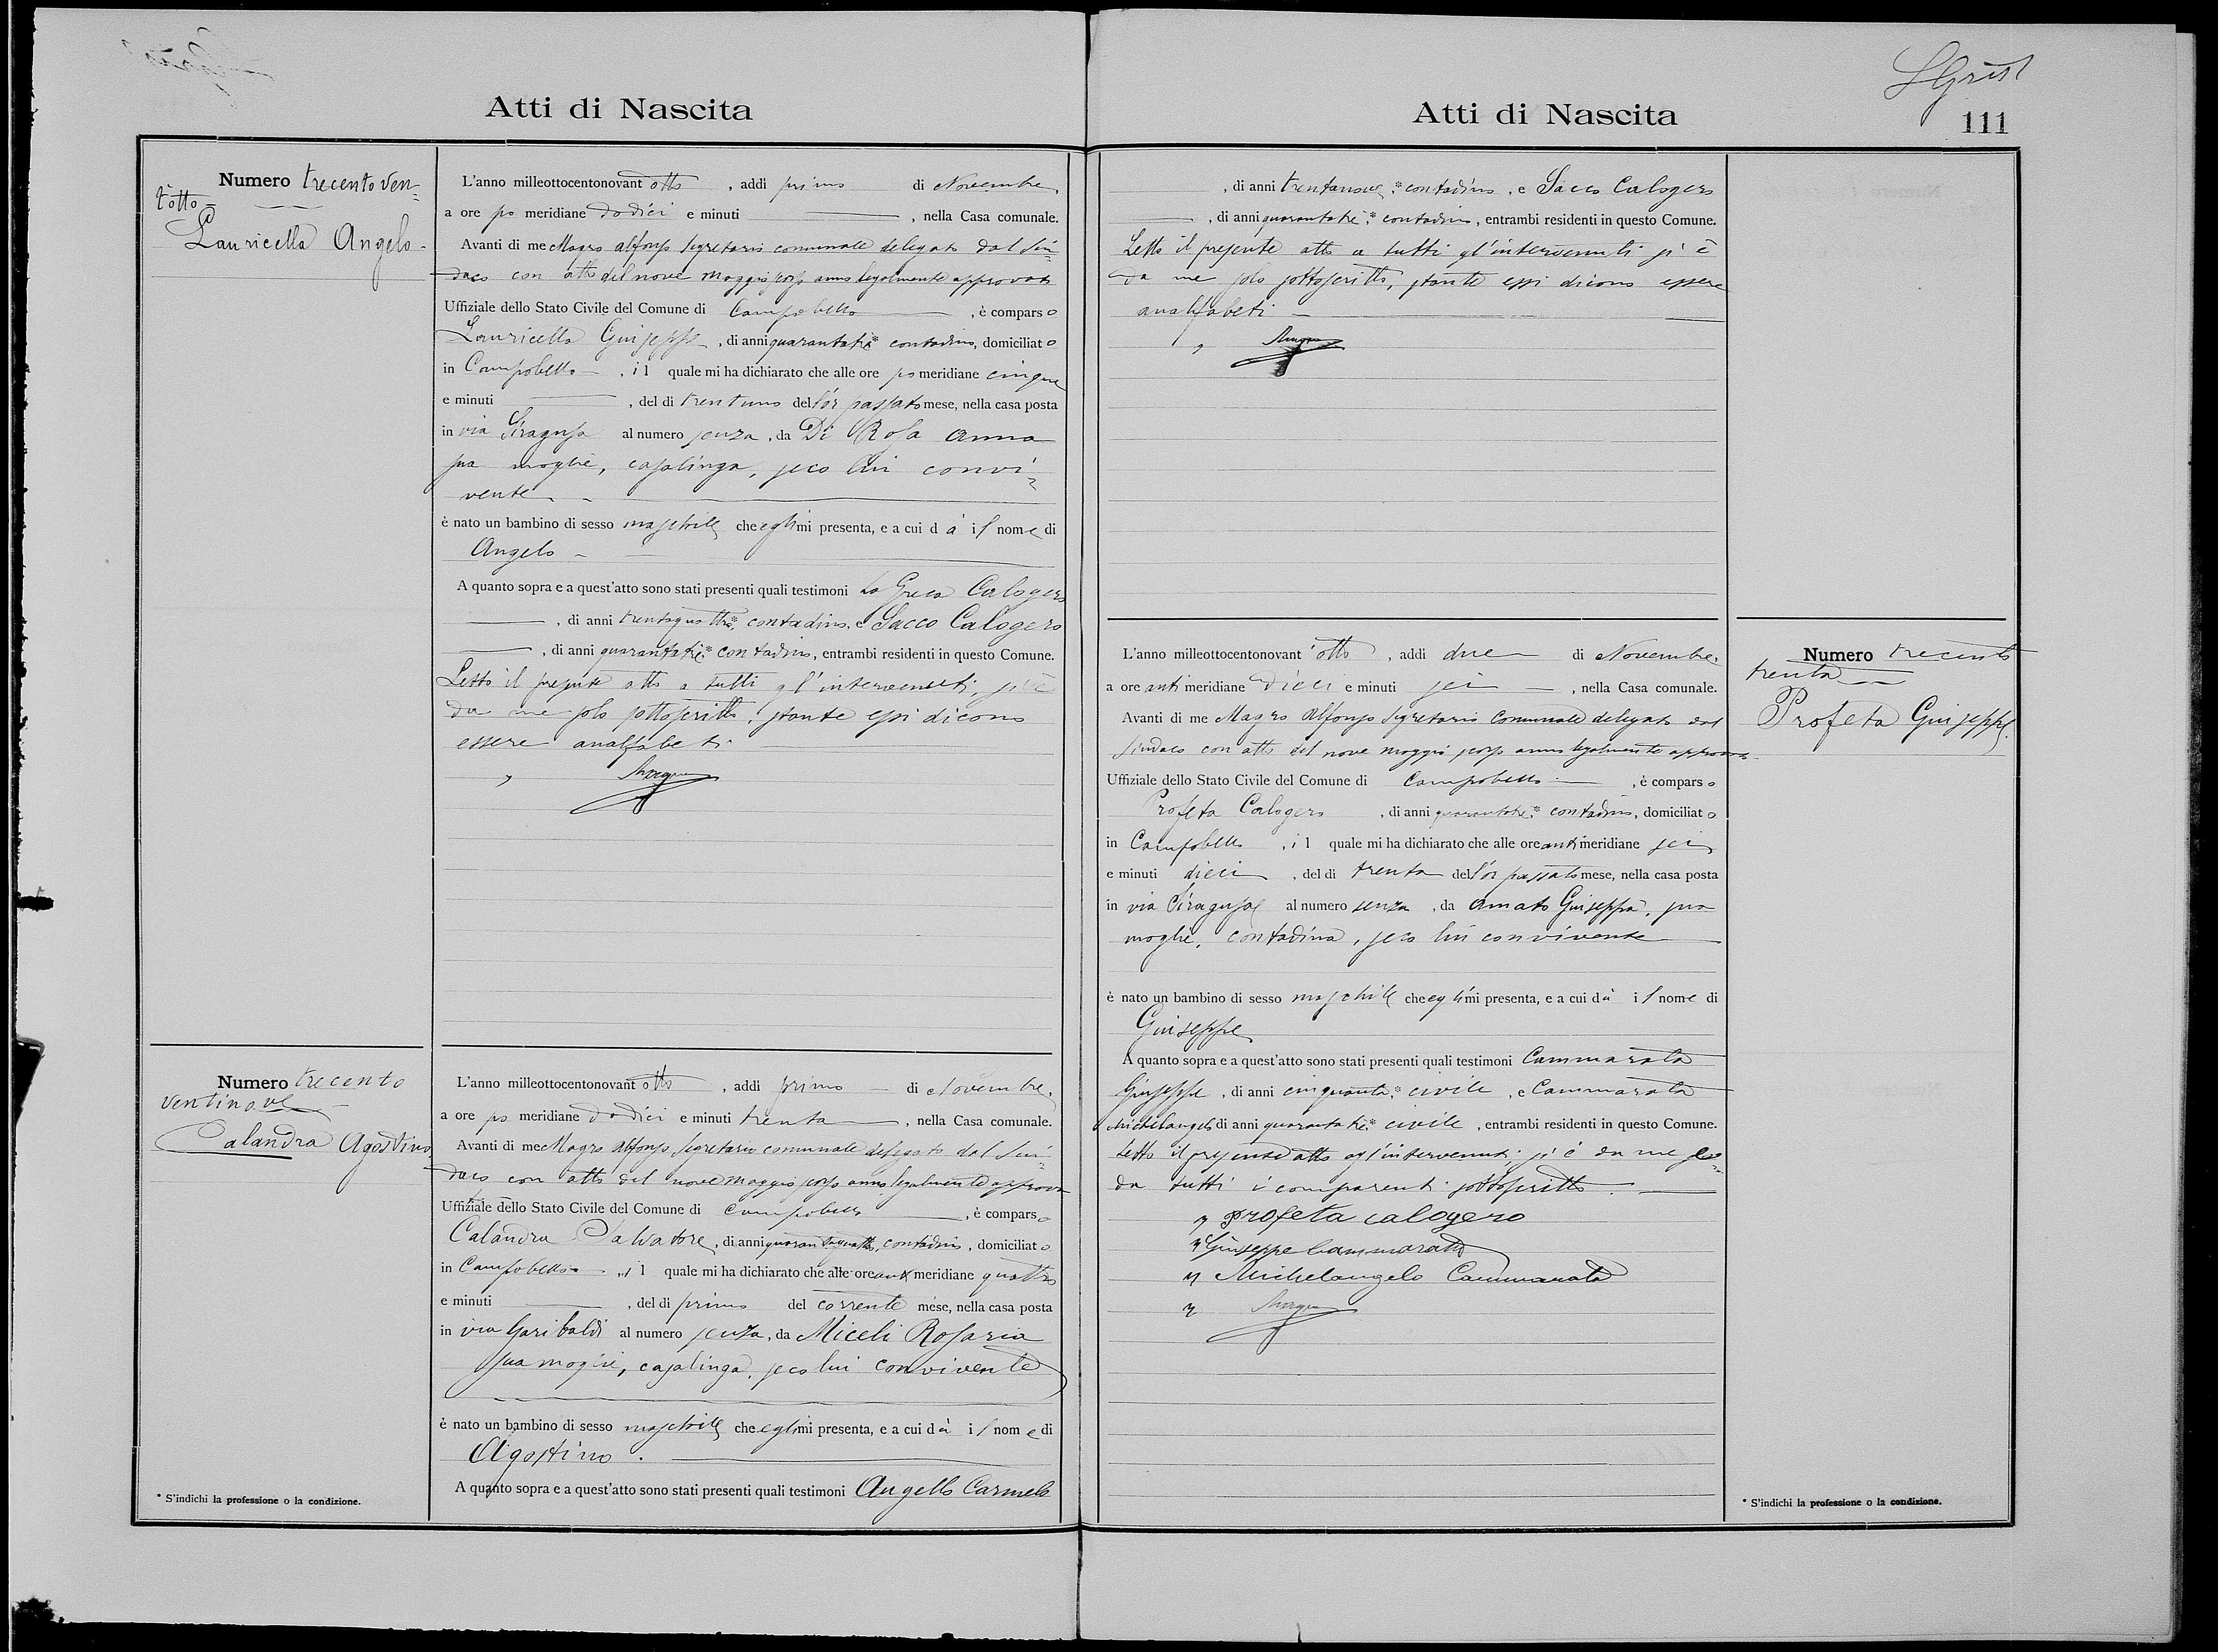 Atti di Nascita
Numero trecentoven=
t'otto
Lauricella Angelo
L'anno milleottocentonovant'otto, addì primo di Novembre,
a ore po meridiane dodici e minuti , nella Casa comunale.
Avanti di me Magro Alfonso Segretario comunale delegato dal Sin=
daco con atto del nove Maggio scorso anno legalmente approvato
Uffiziale dello Stato Civile del Comune di Campobello , è comparso
Lauricella Giuseppe, di anni quarantatre* contadino, domiciliato
in Campobello, il quale mi ha dichiarato che alle ore po meridiane cinque
e minuti , del dì trentuno dell'or passato mese, nella casa posta
in via Siragusa al numero senza, da Di Rosa Anna
sua moglie, casalinga, seco lui convi=
vente
è nato un bambino di sesso maschile che egli mi presenta, e a cui dà il nome di
Angelo
A quanto sopra e a quest'atto sono stati presenti quali testimoni Lo Greco Calogero
, di anni trentaquattro*, contadino, e Sacco Calogero
, di anni quarantatre* contadino, entrambi residenti in questo Comune.
Letto il presente atto a tutti gl'intervenuti, si è
da me solo sottoscritto, stante essi dicono
essere analfabeti
Magro
Numero trecento
ventinove
Calandra Agostino
L'anno milleottocentonovant'otto, addì primo di Novembre,
a ore po meridiane dodici e minuti trenta, nella Casa comunale.
Avanti di me Magro Alfonso Segretario comunale delegato dal Sin=
daco con atto del nove Maggio scorso anno legalmente approva
Uffiziale dello Stato Civile del Comune di Campobello , è comparso
Calandra Salvatore, di anni quarantaquattro, contadino, domiciliato
in Campobello, il quale mi ha dichiarato che alle ore anti meridiane quattro
e minuti , del dì primo del corrente mese, nella casa posta
in via Garibaldi al numero senza, da Miceli Rosaria
sua moglie, casalinga, seco lui convivente
è nato un bambino di sesso maschile che egli mi presenta, e a cui dà il nome di
Agostino.
A quanto sopra e a quest'atto sono stati presenti quali testimoni Angello Carmelo
* S'indichi la professione o la condizione.
Atti di Nascita
111
, di anni trentanove* contadino, e Sacco Calogero
, di anni quarantatre* contadino, entrambi residenti in questo Comune.
Letto il presente atto a tutti gl'intervenuti si è
da me solo sottoscritto, stante essi dicono essere
analfabeti
Magro
Numero trecento
trenta
Profeta Giuseppe.
L'anno milleottocentonovant'otto, addì due di Novembre,
a ore anti meridiane dieci e minuti sei, nella Casa comunale.
Avanti di me Magro Alfonso Segretario Comunale delegato dal
Sindaco con atto del nove Maggio scorso anno legalmente approvato
Uffiziale dello Stato Civile del Comune di Campobello , è comparso
Profeta Calogero, di anni quarantatre* contadino, domiciliato
in Campobello, il quale mi ha dichiarato che alle ore anti meridiane sei
e minuti dieci, del dì trenta dell'or passato mese, nella casa posta
in via Siragusa al numero senza, da Amato Giuseppa, sua
moglie, contadina, seco lui convivente
è nato un bambino di sesso maschile che egli mi presenta, e a cui dà il nome di
Giuseppe
A quanto sopra e a quest'atto sono stati presenti quali testimoni Cammarata
Giuseppe, di anni cinquanta* civile, e Cammarata
Michelangelo di anni quarantatre* civile, entrambi residenti in questo Comune.
Letto il presente atto agl'intervenuti, si è da me e
da tutti i comparenti sottoscritto.
Profeta calogero
Giuseppe Cammarata
Michelangelo Cammarata
Magro
* S'indichi la professione o la condizione.